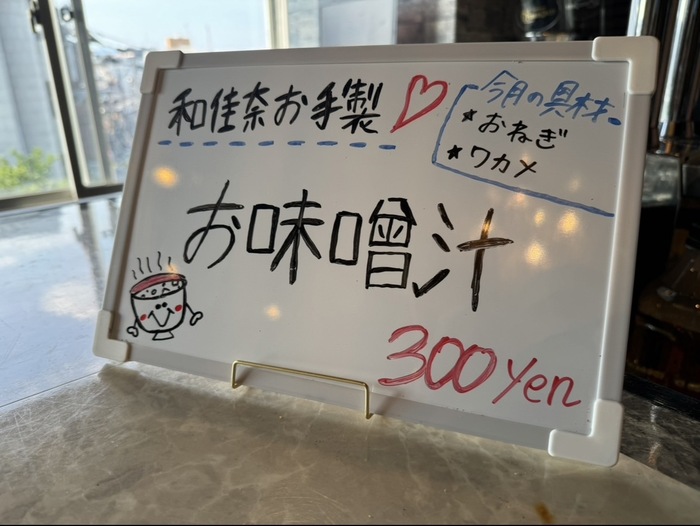 和佳奈お手製♡
今月の具材
★おねぎ
★ワカメ
お味噌汁
300yen